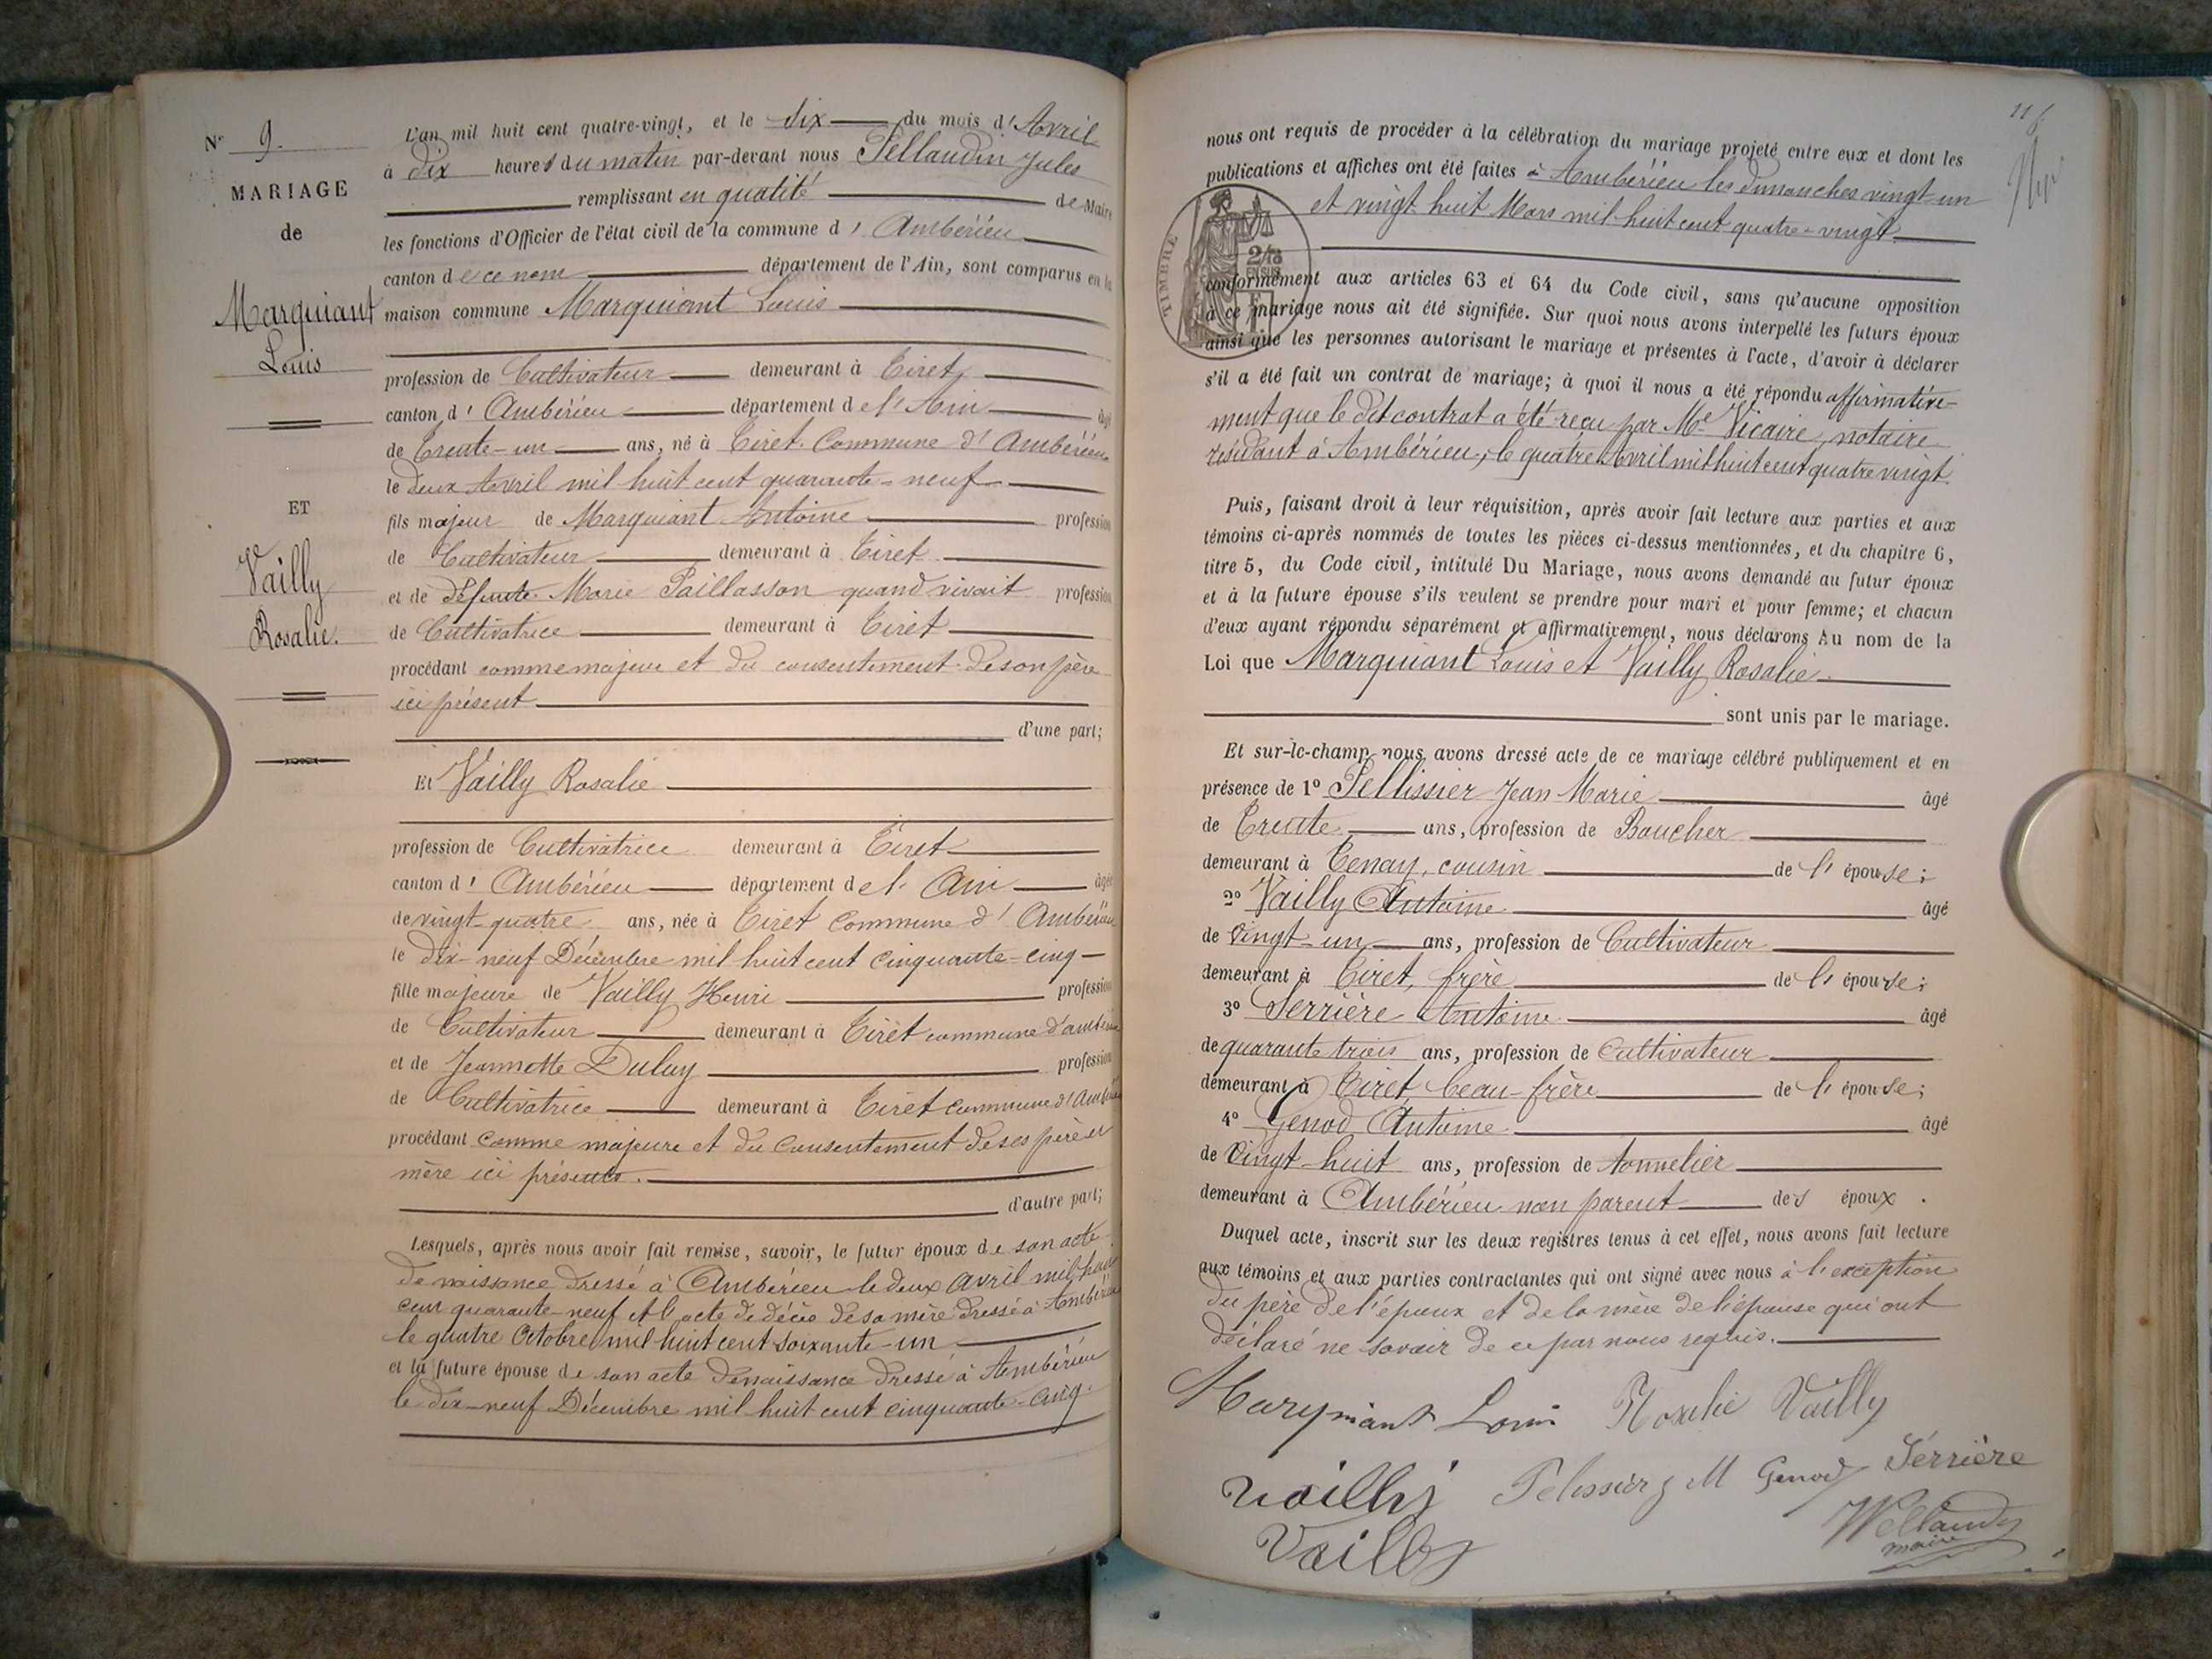 N° 9.
MARIAGE
de
Marguiant
Louis
ET
Vailly
Rosalie.
L'an mil huit cent quatre-vingt, et le dix du mois d'Avril
à dix heures du matin par-devant nous Pellaudin Jules
remplissant en qualité de Maire
les fonctions d'Officier de l'état civil de la commune d'Ambérieu
canton de ce nom département de l'Ain, sont comparus en la
maison commune Marguiant Louis
profession de Cultivateur demeurant à Tiret,
canton d'Ambérieu département de l'Ain âgé
de Trente-un ans, né à Tiret Commune d'Ambérieu
le deux Avril mil huit cent quarante-neuf
fils majeur de Marguiant Antoine profession
de Cultivateur demeurant à Tiret
et de défunte Marie Paillasson quand vivait profession
de Cultivatrice demeurant à Tiret
procédant comme majeur et du consentement de son père
ici présent
d'une part;
Et Vailly Rosalie
profession de Cultivatrice demeurant à Tiret
canton d'Ambérieu département de l'Ain âgée
de vingt-quatre ans, née à Tiret Commune d'Ambérieu
le dix-neuf Décembre mil huit cent cinquante-cinq
fille majeure de Vailly Henri profession
de Cultivateur demeurant à Tiret commune d'Ambérieu
et de Jeannette Duluy profession
de Cultivatrice demeurant à Tiret commune d'Ambérieu
procédant comme majeure et du consentement de ses père et
mère ici présents.
d'autre part;
Lesquels, après nous avoir fait remise, savoir, le futur époux de son acte
de naissance dressé à Ambérieu le deux avril mil huit
cent quarante-neuf et l'acte de décès de sa mère dressé à Ambérieu
le quatre Octobre mil huit cent soixante-un
et la future épouse de son acte de naissance dressé à Ambérieu
le dix-neuf Décembre mil huit cent cinquante-cinq.
116
nous ont requis de procéder à la célébration du mariage projeté entre eux et dont les
publications et affiches ont été faites à Ambérieu les dimanches vingt-un
et vingt huit Mars mil huit cent quatre-vingt
TIMBRE
2/10
EN SUS
conformément aux articles 63 et 64 du Code civil, sans qu'aucune opposition
à ce mariage nous ait été signifiée. Sur quoi nous avons interpellé les futurs époux
ainsi que les personnes autorisant le mariage et présentes à l'acte, d'avoir à déclarer
s'il a été fait un contrat de mariage; à quoi il nous a été répondu affirmative-
ment que le dit contrat a été reçu par Me Vicaire, notaire
résidant à Ambérieu, le quatre Avril mil huit cent quatre vingt.
Puis, faisant droit à leur réquisition, après avoir fait lecture aux parties et aux
témoins ci-après nommés de toutes les pièces ci-dessus mentionnées, et du chapitre 6,
titre 5, du Code civil, intitulé Du Mariage, nous avons demandé au futur époux
et à la future épouse s'ils veulent se prendre pour mari et pour femme; et chacun
d'eux ayant répondu séparément et affirmativement, nous déclarons Au nom de la
Loi que Marguiant Louis et Vailly Rosalie
sont unis par le mariage.
Et sur-le-champ nous avons dressé acte de ce mariage célébré publiquement et en
présence de 1° Pellissier Jean Marie âgé
de Trente ans, profession de Boucher
demeurant à Tenay, cousin de l'épouse;
2° Vailly Antoine âgé
de Vingt-un ans, profession de Cultivateur
demeurant à Tiret, frère de l'épouse;
3° Serrière Antoine âgé
de quarante trois ans, profession de Cultivateur
demeurant à Tiret, beau-frère de l'épouse;
4° Genod Antoine âgé
de Vingt huit ans, profession de tonnelier
demeurant à Ambérieu non parent des époux.
Duquel acte, inscrit sur les deux registres tenus à cet effet, nous avons fait lecture
aux témoins et aux parties contractantes qui ont signé avec nous à l'exception
du père de l'époux et de la mère de l'épouse qui ont
déclaré ne savoir de ce par nous requis.
Marguiant Louis Rosalie Vailly
Vailly Pelissier J M Genod Serrière
Vailly Pellaudin
maire